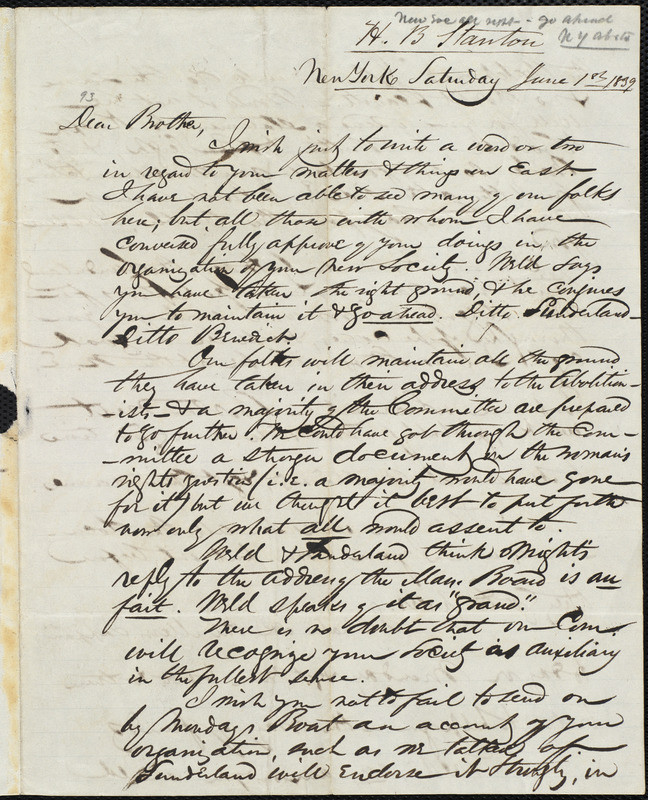 New Soc all right - go ahead
N Y abots
H. B Stanton
New York Saturday June 1st 1839
93
Dear Brother,
I wish just to write a word or two
in regard to your matters & things in East.
I have not been able to see many of our folks
here; but, all those with whom I have
conversed fully approve of your doings in the
organization of your new Society. Weld says
you have taken the right ground, & he conjures
you to maintain it & go ahead. Ditto Sunderland -
Ditto Benedict.
Our folks will maintain all the ground
they have taken in their address to the Abolition-
-ists, - & a majority of the Committee are prepared
to go further. We could have got through the Com-
-mittee a stronger document on the woman's
rights question (i.e. a majority would have gone
for it) but we thought it best to put forth
now only what all would assent to.
Weld & Sunderland think Wright's
reply to the address of the Mass. Board is au
fait. Weld speaks of it as "grand."
There is no doubt that our Com.
will recognize your Society as auxiliary
in the fullest sense.
I wish you not to fail to send on
by Monday's Boat an account of your
organization, such as we talked of.
Sunderland will endorse it strongly, in